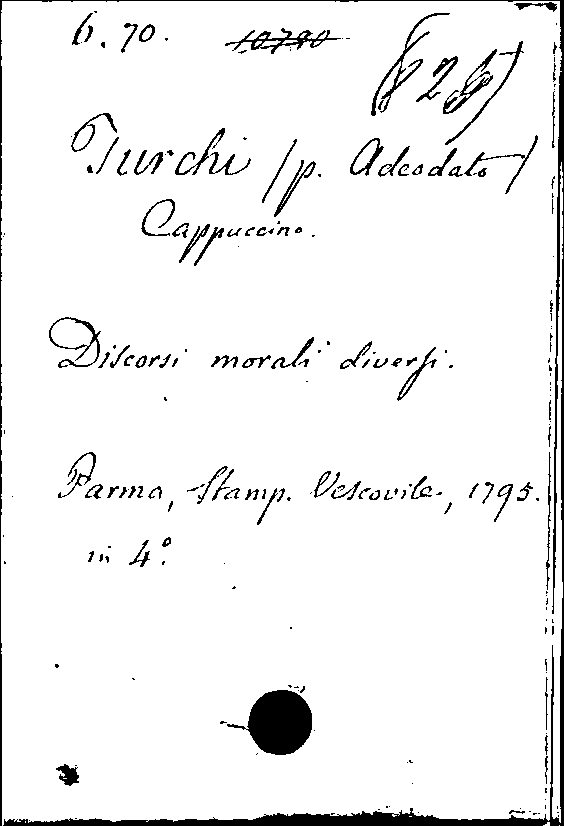 6.70. 10780
Turchi /p. Adeodato/
Cappuccino.
Discorsi morali diversi.
Parma, Stamp. Vescovile, 1795.
in 4°.